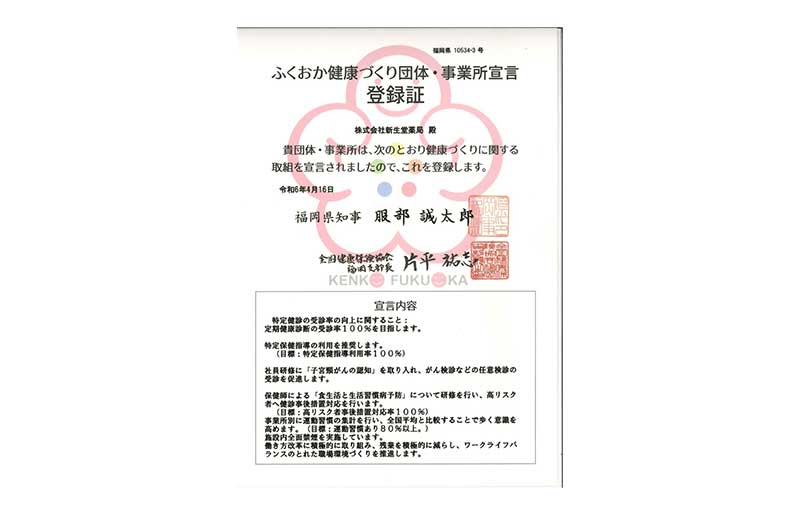 福岡県 10534-3 号
ふくおか健康づくり団体・事業所宣言
登録証
株式会社新生堂薬局 殿
貴団体・事業所は、次のとおり健康づくりに関する
取組を宣言されましたので、これを登録します。
令和6年4月16日
福岡県知事 服部 誠太郎
全国健康保険協会
福岡支部長 片平 祐志
KENKO FUKUOKA
宣言内容
特定健診の受診率の向上に関すること：
定期健康診断の受診率１００％を目指します。
特定保健指導の利用を推奨します。
（目標：特定保健指導利用率１００％）
社員研修に「子宮頸がんの認知」を取り入れ、がん検診などの任意検診の
受診を促進します。
保健師による「食生活と生活習慣病予防」について研修を行い、高リスク
者へ健診事後措置対応を行います。
（目標：高リスク者事後措置対応率１００％）
事業所別に運動習慣の集計を行い、全国平均と比較することで歩く意識を
高めます。（目標：運動習慣あり８０％以上。）
施設内全面禁煙を実施しています。
働き方改革に積極的に取り組み、残業を積極的に減らし、ワークライフバ
ランスのとれた職場環境づくりを推進します。